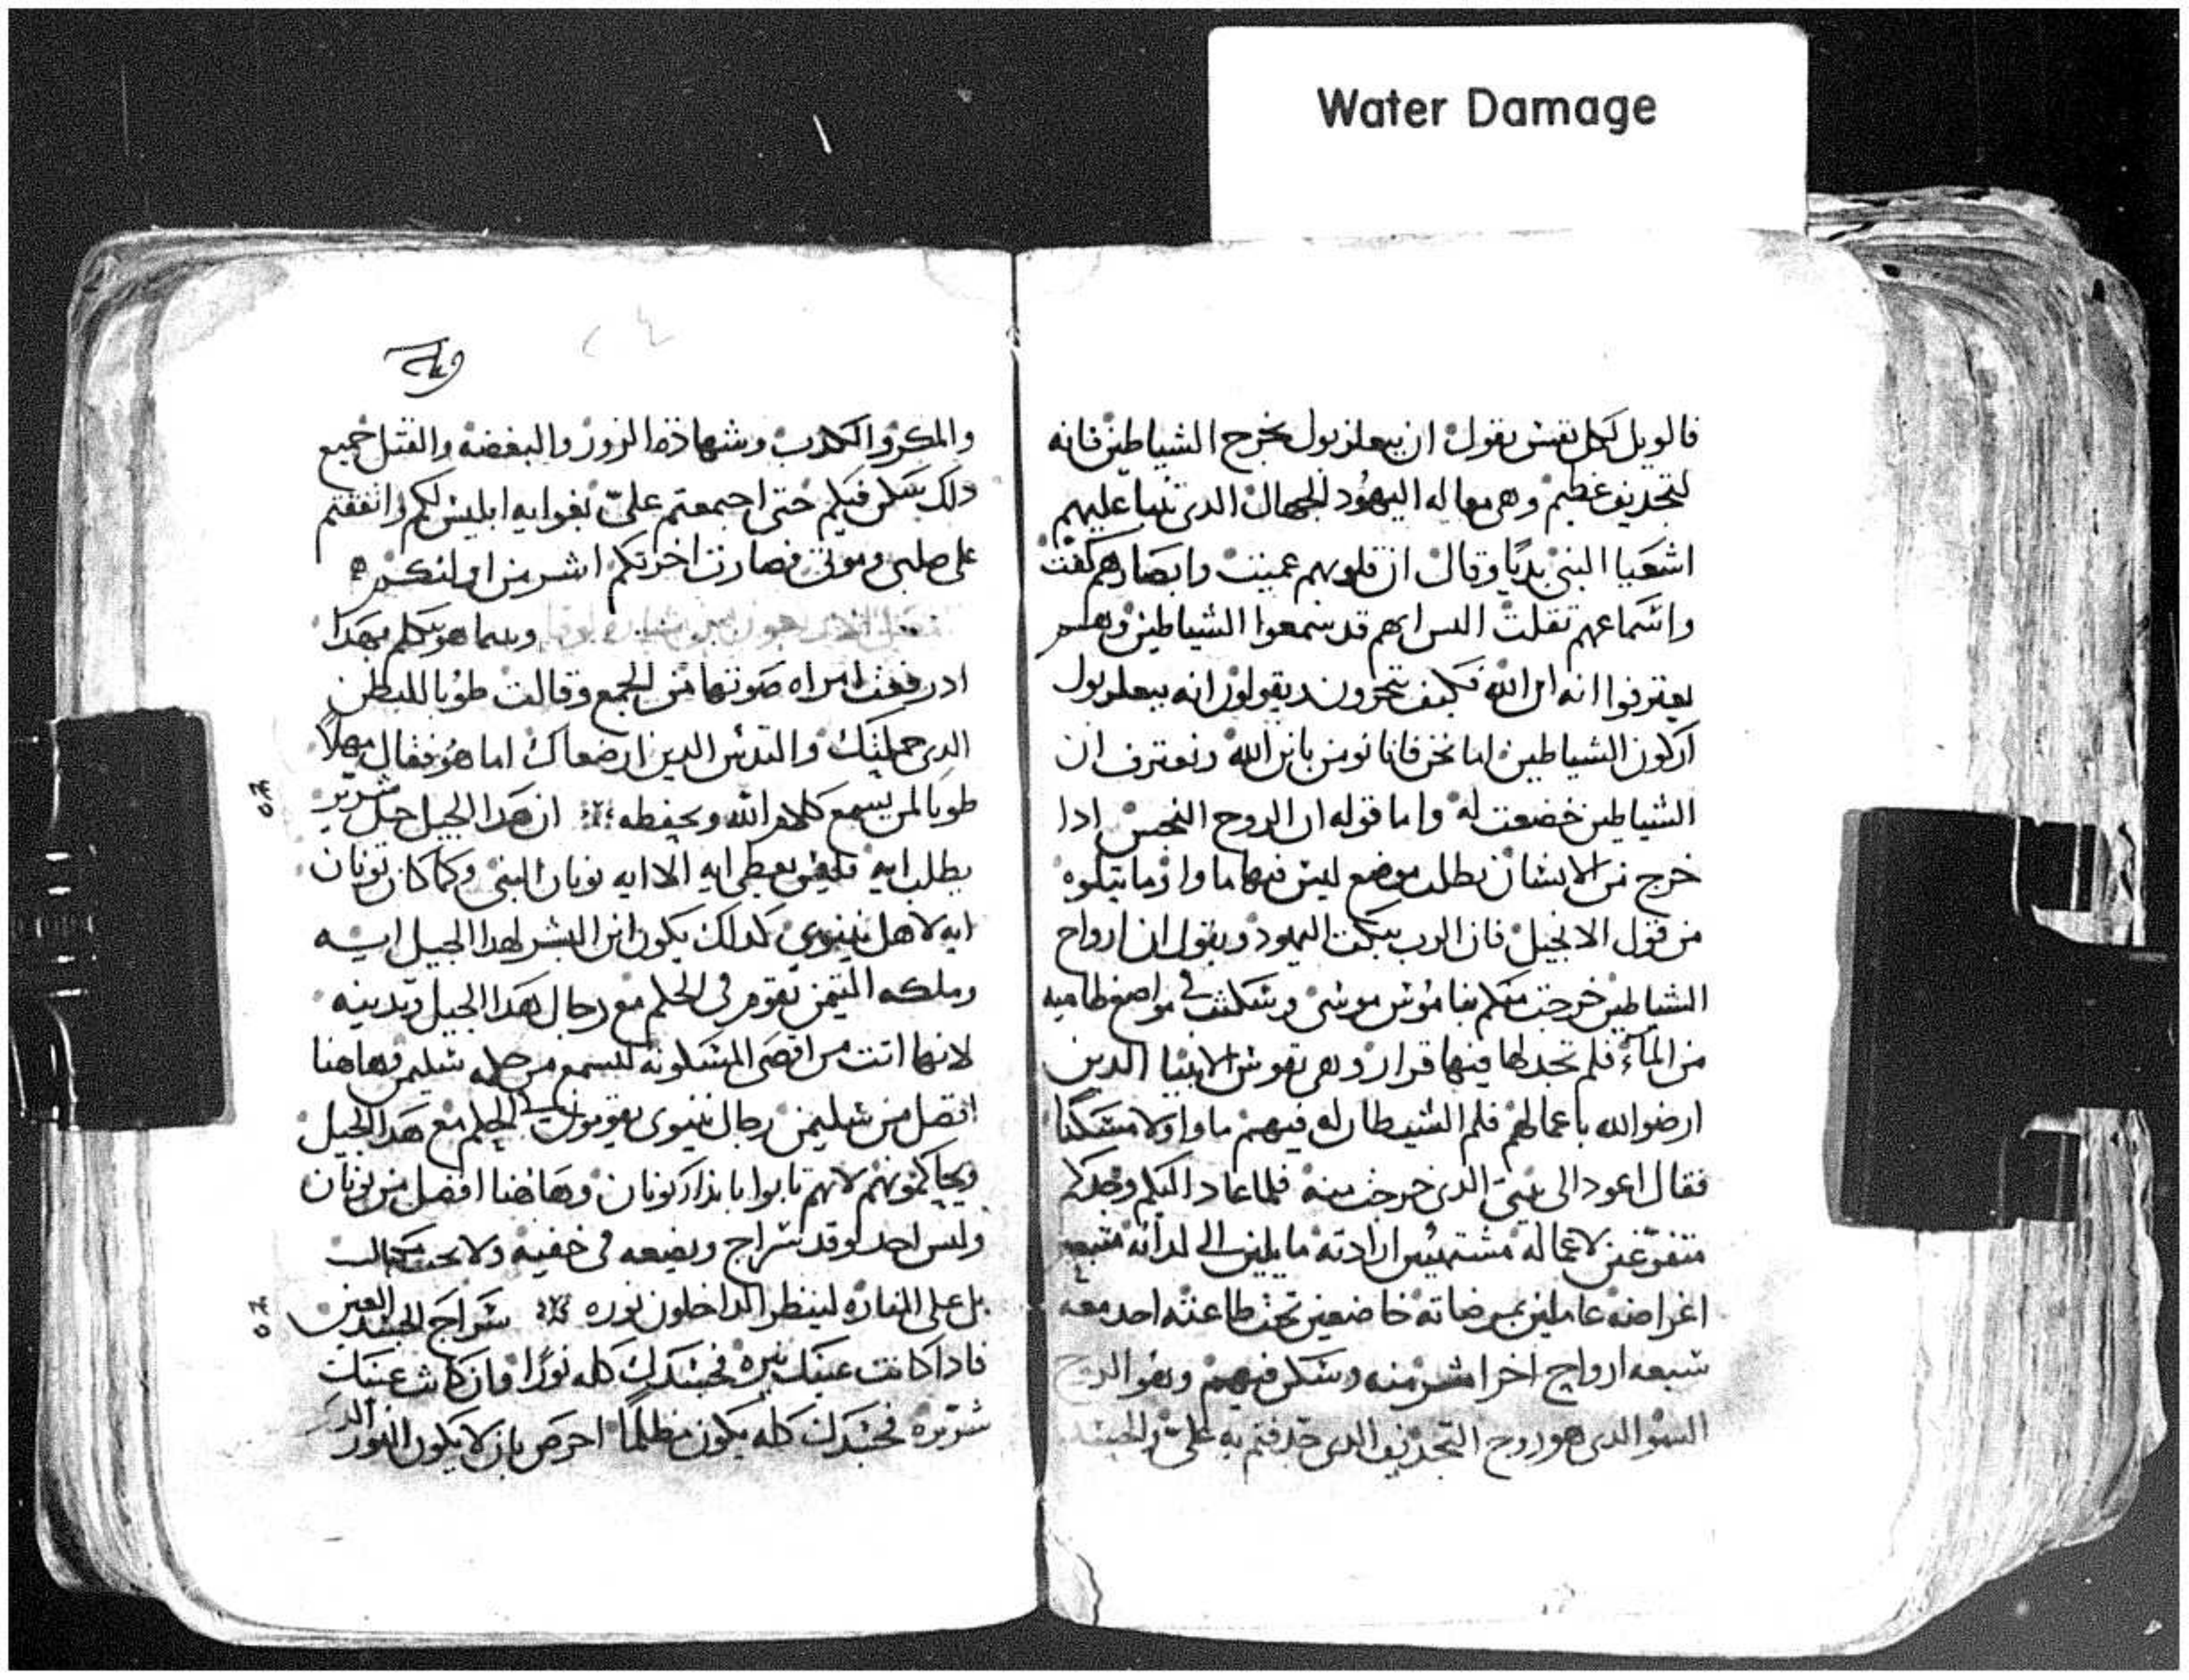 Water Damage
فالويل لكل نفس تقول ان بيعلزبول يخرج الشياطين فانه
لتجديف عظيم وهي مقاله اليهود الجهال الدي تنبا عليهم
اشعيا النبي بديًا وقال ان قلوبهم عميت وابصارهم كفت
واسماعهم تقلت اليس ابهم قد سمعوا الشياطين وهم
يعترفوا انه ابن الله فكيف تتجرون وتقولون انه بيعلزبول
اركون الشياطين اما نحن فانا نومن بابن الله ونعترف ان
الشياطين خضعت له واما قوله ان الروح النجس ادا
خرج من الانسان يطلب موضع ليس فيها ما وا وما يتلوه
من قول الانجيل فان الرب يبكت اليهود ويقول ان ارواح
الشياطين خرجت منكم بناموس موسي وسكنت في مواضع ظاميه
من الماء فلم تجد لها فيها قرار وهي نفوس الانبيا الدين
ارضوا الله باعمالهم فلم الشيطان له فيهم ماوا ولا مسكنًا
فقال اعود الى بيتي الدي خرجت منه فلما عاد اليكم وجدكم
متفرغين لاعماله مشتهيين ارادته مايلين الى لداته متبعين
اغراضه عاملين بمرضاته خاضعين تحت طاعته احد معه
سبعه ارواح اخر اشر منه وسكن فيهم وهو الروح
السو الدي هو روح التجديف الدي جدفتم به علي والحسد
والمكر والكدب وشهادة الزور والبغضه والقتل جميع
دلك سكن فيكم حتى اجتمعتم علي بغوايه ابليس لكم واتفقتم
على صلبي وموتي فصارت اخرتكم اشر من اولتكم
وبينما هو يتكلم بهدا
اد رفعت امراه صوتها من الجمع وقالت طوبا للبطن
الدي حملتك والتديين الدين ارضعاك اما هو فقال مهلًا
طوبا لمن يسمع كلام الله ويحفظه ان هدا الجيل جيل شرير
يطلب ايه فليس يعطى ايه الا ايه يونان النبي وكما كان يونان
ايه لاهل نينوي كدلك يكون ابن البشر لهدا الجيل ايه
وملكه التيمن تقوم في الحكم مع رجال هدا الجيل وتدينه
لانها اتت من اقصى المسكونه لتسمع من حكمه سليمن وهاهنا
افضل من سليمن رجال نينوي يقومون في الحكم مع هدا الجيل
ويحاكمونهم لانهم تابوا بانذار يونان وهاهنا افضل من يونان
وليس احد يوقد سراج ويضعه في خفيه ولا تحت مكيال
بل على المناره لينظر الداخلون نوره سراج الجسد العين
فادا كانت عينك نيره فجسدك كله نورًا وان كانت عينك
شريره فجسدك كله يكون مظلمًا احرص بان لا يكون النور الدي